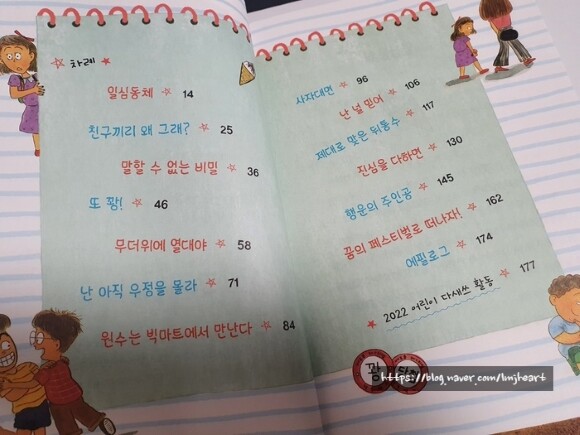 차례
일심동체 14
친구끼리 왜 그래? 25
말할 수 없는 비밀 36
또 꽝! 46
무더위에 열대야 58
난 아직 우정을 몰라 71
원수는 빅마트에서 만난다 84
사자대면 96
난 널 믿어 106
제대로 맞은 뒤통수 117
진심을 다하면 130
행운의 주인공 145
꿈의 페스티벌로 떠나자! 162
에필로그 174
2022 어린이 다새쓰 활동 177
https://blog.naver.com/lmjheart